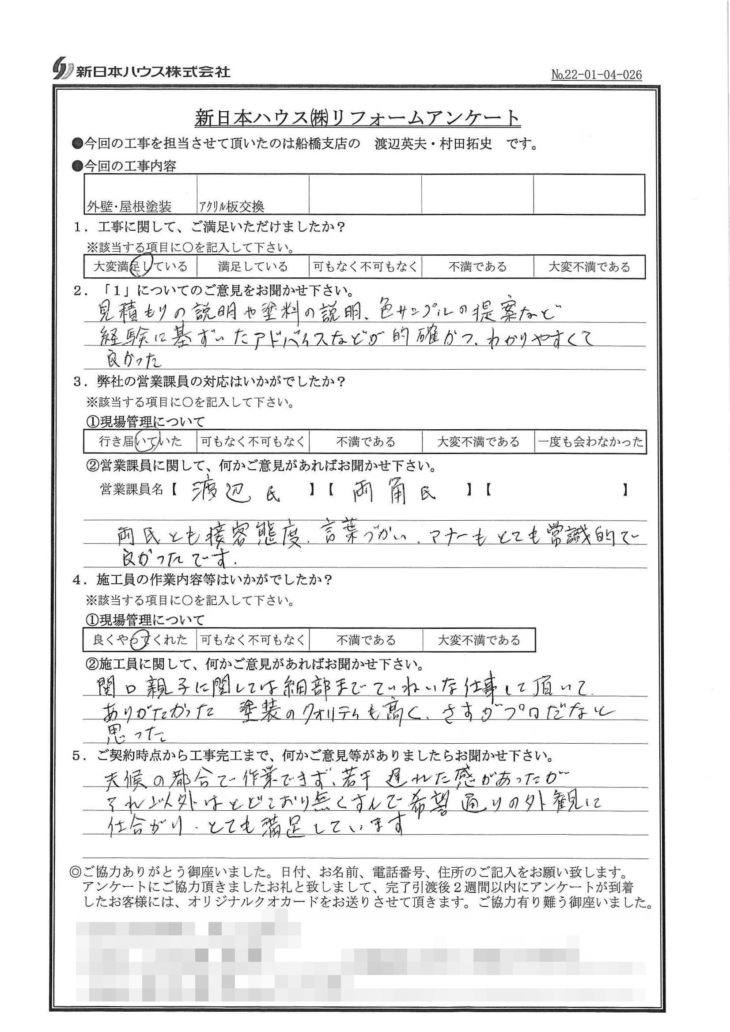 新日本ハウス株式会社
No.22-01-04-026
新日本ハウス㈱リフォームアンケート
●今回の工事を担当させて頂いたのは船橋支店の 渡辺英夫・村田拓史 です。
●今回の工事内容
外壁・屋根塗装 ｱｸﾘﾙ板交換
1．工事に関して、ご満足いただけましたか？
※該当する項目に○を記入して下さい。
大変満足している 満足している 可もなく不可もなく 不満である 大変不満である
2．「1」についてのご意見をお聞かせ下さい。
見積もりの説明や塗料の説明、色サンプルの提案など
経験に基ずいたアドバイスなどが的確かつ、わかりやすくて
良かった
3．弊社の営業課員の対応はいかがでしたか？
※該当する項目に○を記入して下さい。
①現場管理について
行き届いていた 可もなく不可もなく 不満である 大変不満である 一度も会わなかった
②営業課員に関して、何かご意見があればお聞かせ下さい。
営業課員名【 渡辺氏 】【 両角氏 】【 】
両氏とも接客態度、言葉づかい、マナーもとても常識的で
良かったです。
4．施工員の作業内容等はいかがでしたか？
※該当する項目に○を記入して下さい。
①現場管理について
良くやってくれた 可もなく不可もなく 不満である 大変不満である
②施工員に関して、何かご意見があればお聞かせ下さい。
関口親子に関しては細部までていねいな仕事して頂いて、
ありがたかった 塗装のクオリティも高く、さすがプロだなと
思った
5．ご契約時点から工事完工まで、何かご意見等がありましたらお聞かせ下さい。
天候の都合で作業できず、若干遅れた感があったが
それ以外はとどこおり無くすんで希望通りの外観に
仕合がり、とても満足しています
◎ご協力ありがとう御座いました。日付、お名前、電話番号、住所のご記入をお願い致します。
アンケートにご協力頂きましたお礼と致しまして、完了引渡後2週間以内にアンケートが到着
したお客様には、オリジナルクオカードをお送りさせて頂きます。ご協力有り難う御座いました。